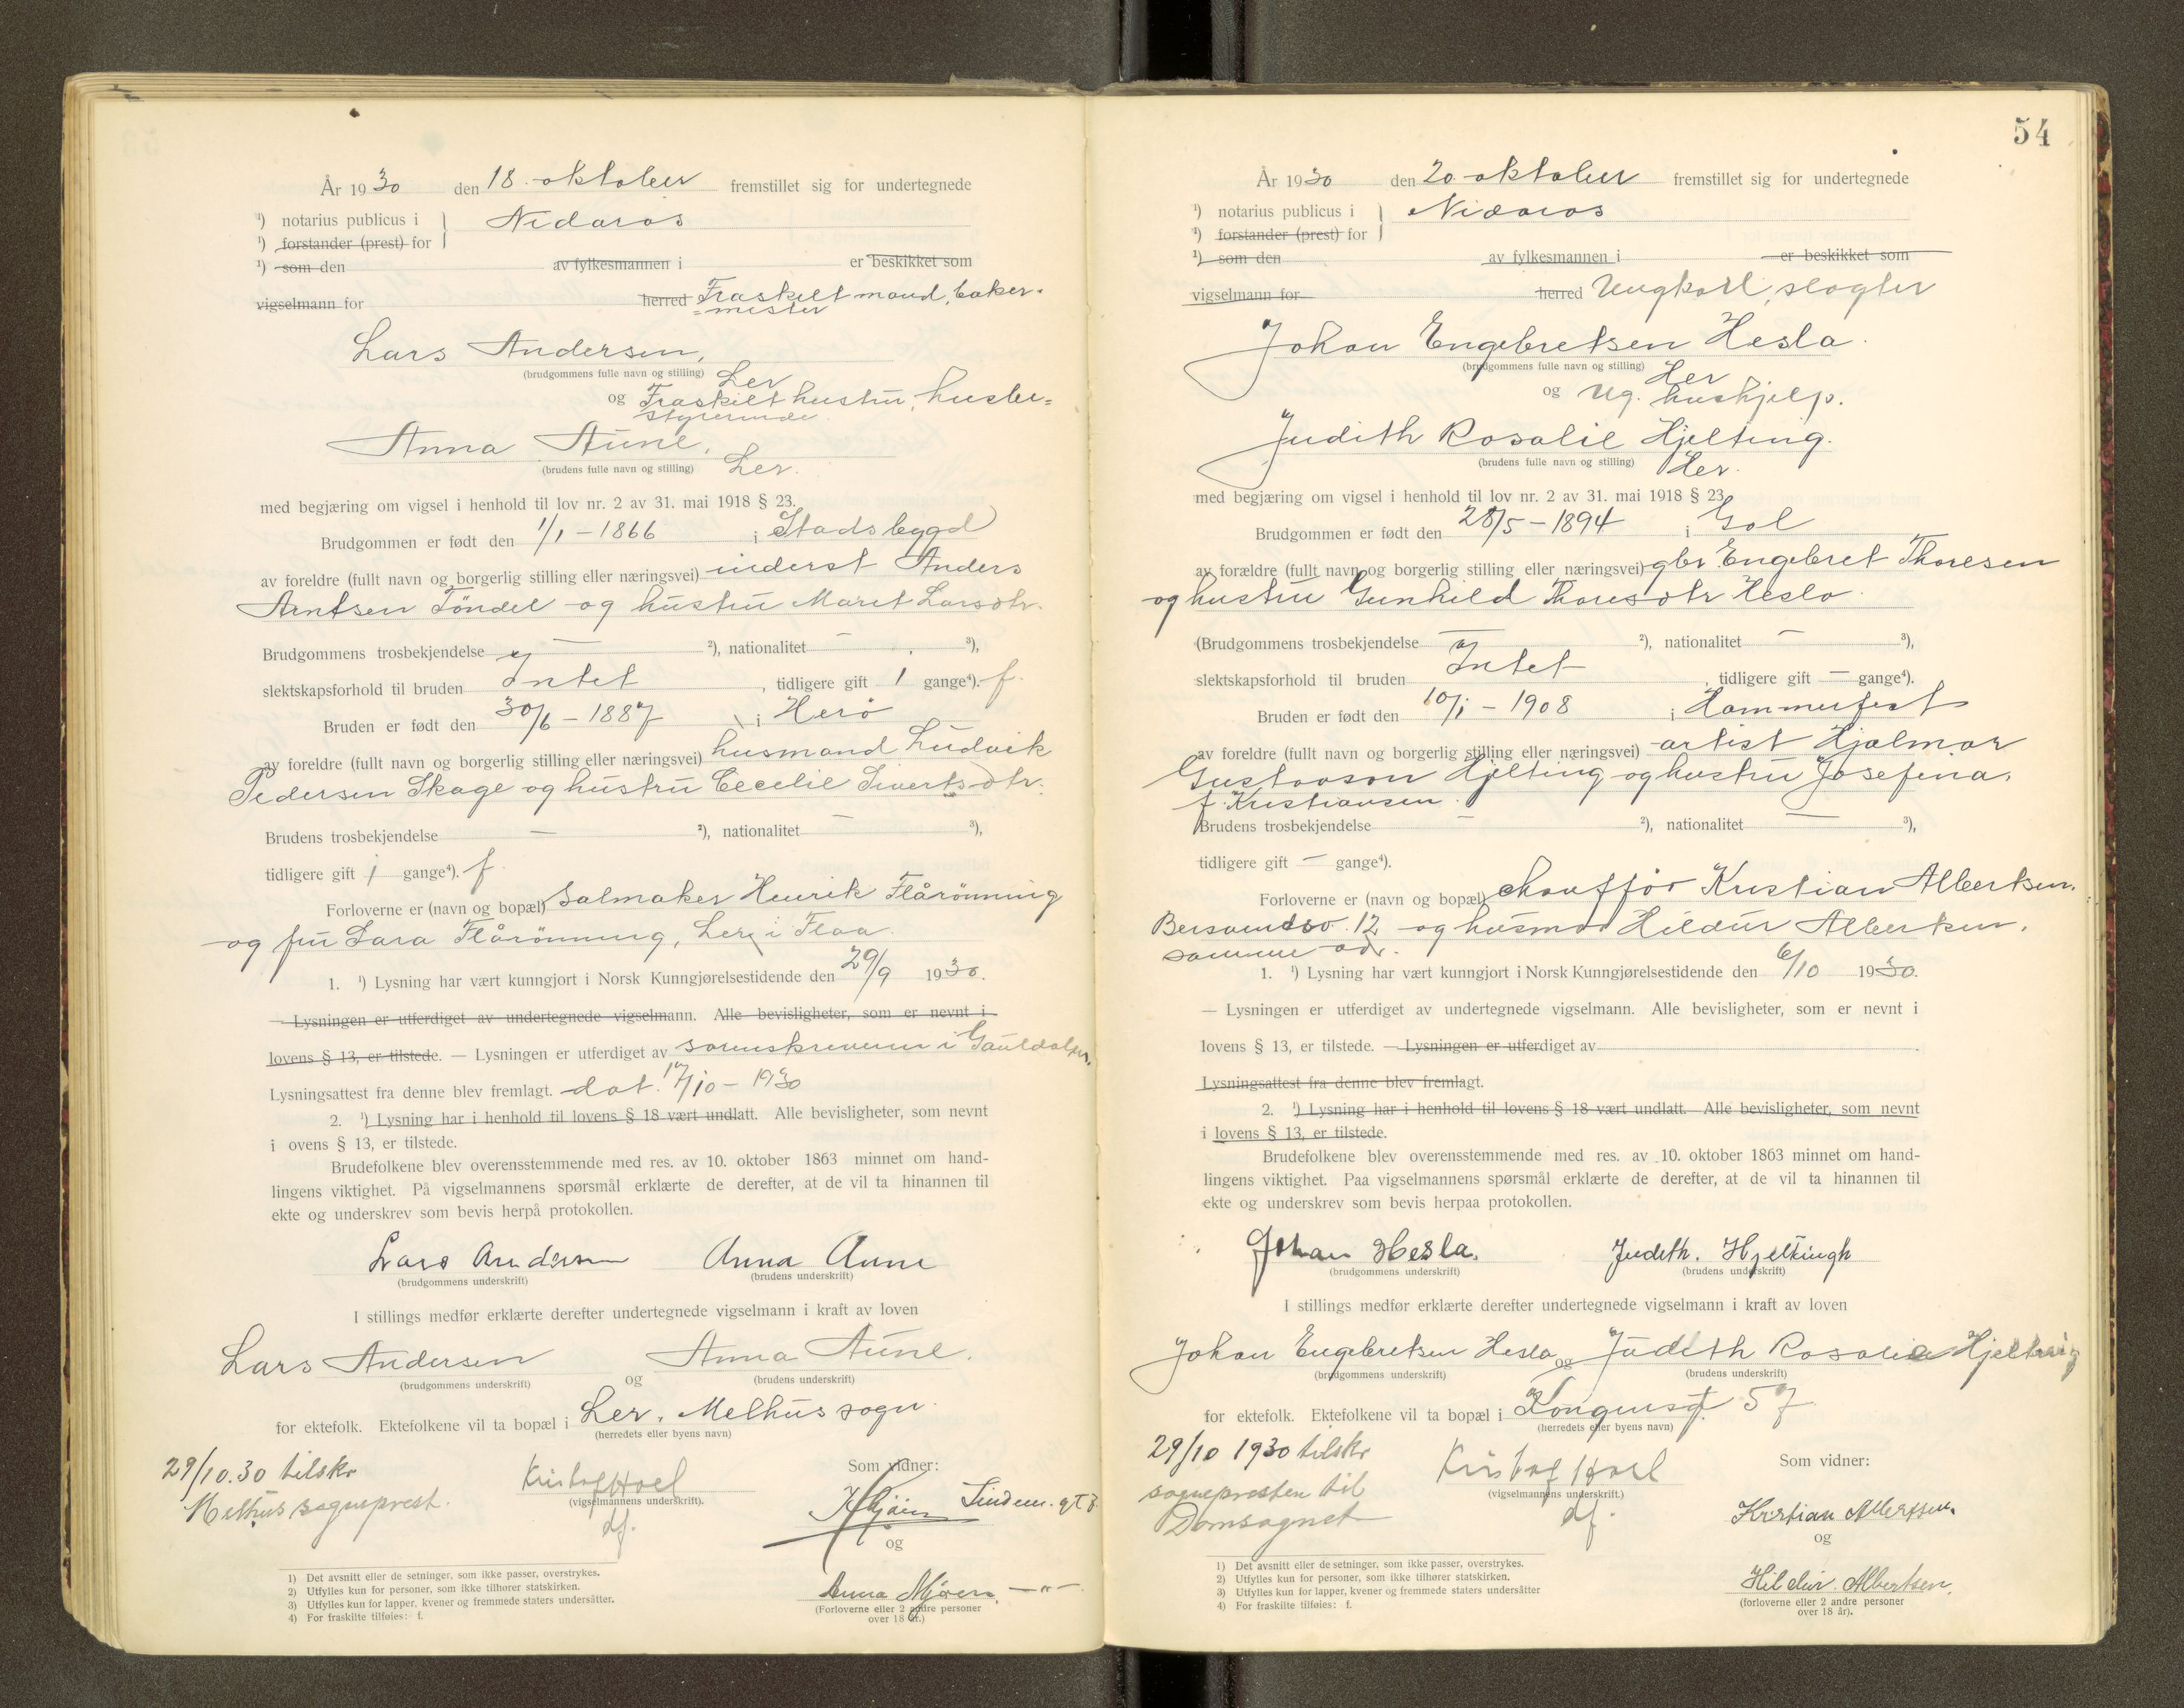 År 1930 den 18. oktober fremstillet sig for undertegnede
¹) notarius publicus i } Nidaros
¹) forstander (prest) for
¹) som den av fylkesmannen i er beskikket som
vigselmann for herred Fraskilt mand, baker-
=mester
Lars Andersen,
(brudgommens fulle navn og stilling) Ler
og Fraskilt hustru, husbe=
styrerinde
Anna Aune,
(brudens fulle navn og stilling) Ler.
med begjæring om vigsel i henhold til lov nr. 2 av 31. mai 1918 § 23.
Brudgommen er født den 1/1 - 1866 i Stadsbygd
av foreldre (fullt navn og borgerlig stilling eller næringsvei) inderst Anders
Arntsen Töndel og hustru Maret Larsdtr.
Brudgommens trosbekjendelse — ²), nationalitet — ³),
slektskapsforhold til bruden Intet, tidligere gift 1 gange⁴). f.
Bruden er født den 30/6 - 1887 i Herö
av foreldre (fullt navn og borgerlig stilling eller næringsvei) husmand Ludvik
Pedersen Skage og hustru Cecelie Sivertsdtr.
Brudens trosbekjendelse — ²), nationalitet — ³),
tidligere gift 1 gange⁴). f.
Forloverne er (navn og bopæl) Salmaker Henrik Flårönning
og fru Sara Flårönning, Ler i Flaa.
1. ¹) Lysning har vært kunngjort i Norsk Kunngjørelsestidende den 29/9 1930.
— Lysningen er utferdiget av undertegnede vigselmann. Alle bevisligheter, som er nevnt i
lovens § 13, er tilstede. — Lysningen er utferdiget av sorenskriveren i Gauldalen.
Lysningsattest fra denne blev fremlagt. dat. 17/10 - 1930
2. ¹) Lysning har i henhold til lovens § 18 vært undlatt. Alle bevisligheter, som nevnt
i ovens § 13, er tilstede.
Brudefolkene blev overensstemmende med res. av 10. oktober 1863 minnet om hand-
lingens viktighet. På vigselmannens spørsmål erklærte de derefter, at de vil ta hinannen til
ekte og underskrev som bevis herpå protokollen.
Lars Andersen Anna Aune
(brudgommens underskrift) (brudens underskrift)
I stillings medfør erklærte derefter undertegnede vigselmann i kraft av loven
Lars Andersen og Anna Aune.
(brudgommens underskrift) (brudens underskrift)
for ektefolk. Ektefolkene vil ta bopæl i Ler, Melhus sogn.
(herredets eller byens navn)
29/10.30 tilskr
Melhus sogneprest.
Kristof Hoel
(vigselmannens underskrift).
df.
Som vidner:
og
Anna Mjøen —"—
(Forloverne eller 2 andre personer
over 18 år.)
1) Det avsnitt eller de setninger, som ikke passer, overstrykes.
2) Utfylles kun for personer, som ikke tilhører statskirken.
3) Utfylles kun for lapper, kvener og fremmede staters undersåtter.
4) For fraskilte tilføies: f.
54
År 1930 den 20 oktober fremstillet sig for undertegnede
¹) notarius publicus i } Nidaros
¹) forstander (prest) for
¹) som den av fylkesmannen i er beskikket som
vigselmann for herred Ungkarl, slagter
Johan Engebretsen Hesla.
(brudgommens fulle navn og stilling) Her
og Ug. hushjelp.
Judith Rosalie Hjelting.
(brudens fulle navn og stilling) Her.
med begjæring om vigsel i henhold til lov nr. 2 av 31. mai 1918 § 23.
Brudgommen er født den 28/5 - 1894 i Gol
av forældre (fullt navn og borgerlig stilling eller næringsvei) gbr. Engebret Thoresen
og hustru Gunhild Thoresdtr Hesla.
(Brudgommens trosbekjendelse — ²), nationalitet — ³),
slektskapsforhold til bruden Intet, tidligere gift — gange⁴).
Bruden er født den 10/1 - 1908 i Hammerfest
av foreldre (fullt navn og borgerlig stilling eller næringsvei) artist Hjalmar
Gustavson Hjelting og hustru Josefina,
f. Kristiansen.
Brudens trosbekjendelse — ²), nationalitet — ³),
tidligere gift — gange⁴).
Forloverne er (navn og bopæl) chaufför Kristian Albertsen,
Bersvendsv. 12 og husmor Hildur Albertsen,
samme adr.
1. ¹) Lysning har vært kunngjort i Norsk Kunngjørelsestidende den 6/10 1930.
— Lysningen er utferdiget av undertegnede vigselmann. Alle bevisligheter, som er nevnt i
lovens § 13, er tilstede. — Lysningen er utferdiget av .
Lysningsattest fra denne blev fremlagt.
2. ¹) Lysning har i henhold til lovens § 18 vært undlatt. Alle bevisligheter, som nevnt
i lovens § 13, er tilstede.
Brudefolkene blev overensstemmende med res. av 10. oktober 1863 minnet om hand-
lingens viktighet. Paa vigselmannens spørsmål erklærte de derefter, at de vil ta hinannen til
ekte og underskrev som bevis herpaa protokollen.
Johan Hesla. Judith. Hjeltingh
(brudgommens underskrift) (brudens underskrift)
I stillings medfør erklærte derefter undertegnede vigselmann i kraft av loven
Johan Engebretsen Hesla og Judith Rosalie Hjelting
(brudgommens underskrift) (brudens underskrift)
for ektefolk. Ektefolkene vil ta bopæl i Kongensgt. 57
(herredets eller byens navn)
29/10 1930 tilskr
sognepresten til
Domsognet
Kristof Hoel
(vigselmannens underskrift.)
df.
Som vidner:
Kristian Albertsen.
og
Hildur. Albertsen.
(forloverne eller 2 andre personer
over 18 år).
1) Det avsnitt eller de setninger, som ikke passer, overstrykes.
2) Utfylles kun for personer, som ikke tilhører statskirken.
3) Utfylles kun for lapper, kvener og fremmede staters undersåtter
4) For fraskilte tilføies: f.